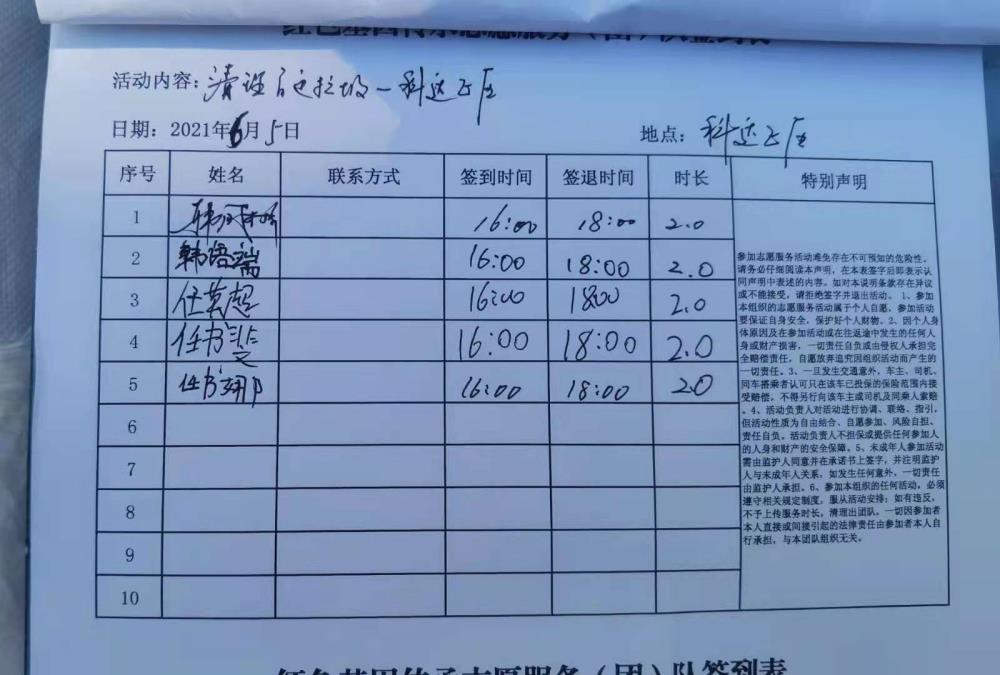 活动内容：清理
日期：2021年6月5日 地点：科达
序号 姓名 联系方式 签到时间 签退时间 时长 特别声明
1 16:00 18:00 2.0
2 韩语端 16:00 18:00 2.0
3 任英超 16:00 18:00 2.0
4 任书 16:00 18:00 2.0
5 任书娜 16:00 18:00 2.0
6
7
8
9
10
参加志愿服务活动难免存在不可预知的危险性，
请务必仔细阅读本声明，在本表签字后即表示认
同声明中表述的内容。如对本说明条款存在异议
或不能接受，请拒绝签字并退出活动。 1、参加
本组织的志愿服务活动属于个人自愿，参加活动
要保证自身安全，保护好个人财物。2、因个人身
体原因及在参加活动或在往返途中发生的任何人
身或财产损害，一切责任自负或由侵权人承担完
全赔偿责任，自愿放弃追究因组织活动而产生的
一切责任。3、一旦发生交通意外，车主、司机、
同车搭乘者认可只在该车已投保的保险范围内接
受赔偿，不得另行向该车主或司机及同乘人索赔
。4、活动负责人对活动进行协调、联络、指引，
但活动性质为自由结合、自愿参加、风险自担、
责任自负。活动负责人不担保或提供任何参加人
的人身和财产的安全保障。5、未成年人参加活动
需由监护人同意并在承诺书上签字，并注明监护
人与未成年人关系，如发生任何意外，一切责任
由监护人承担。6、参加本组织的任何活动，必须
遵守相关规定制度，服从活动安排；如有违反，
不予上传服务时长，清理出团队。一切因参加者
本人直接或间接引起的法律责任由参加者本人自
行承担，与本团队组织无关。
红色基因传承志愿服务（团）队签到表